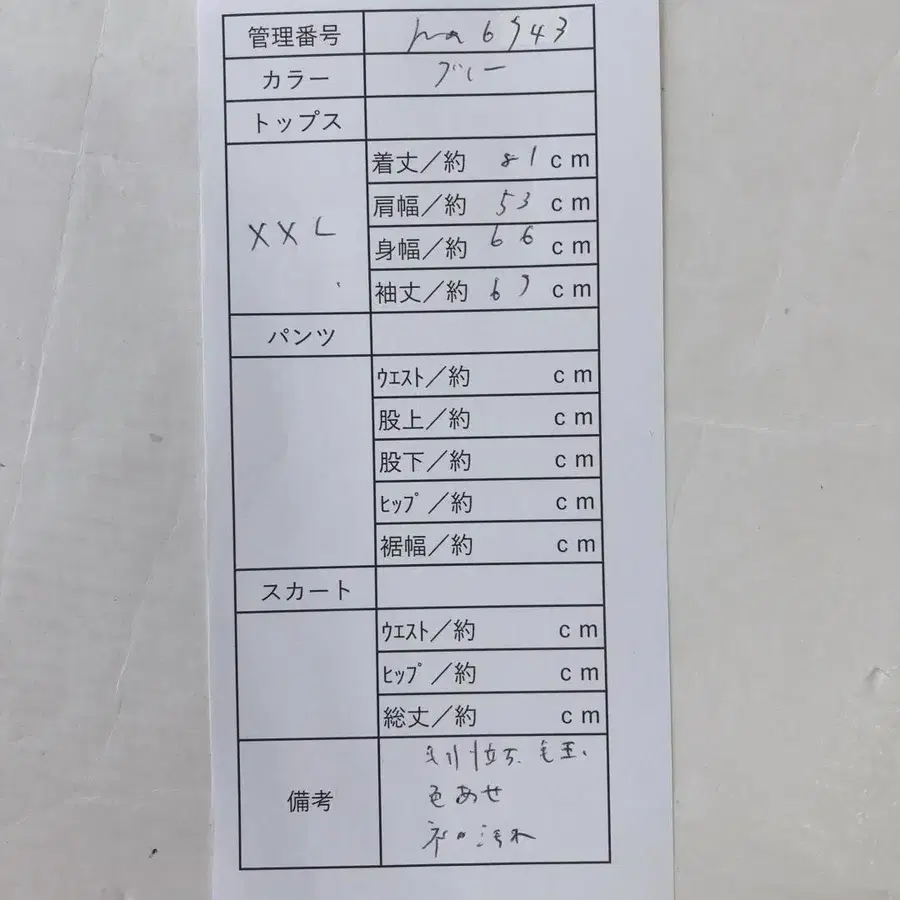 管理番号 ha6943
カラー ブルー
トップス
XXL
着丈／約 81 cm
肩幅／約 53 cm
身幅／約 66 cm
袖丈／約 67 cm
パンツ
ｳｴｽﾄ／約 cm
股上／約 cm
股下／約 cm
ﾋｯﾌﾟ／約 cm
裾幅／約 cm
スカート
ｳｴｽﾄ／約 cm
ﾋｯﾌﾟ／約 cm
総丈／約 cm
備考
毛玉、
色あせ
汚れ